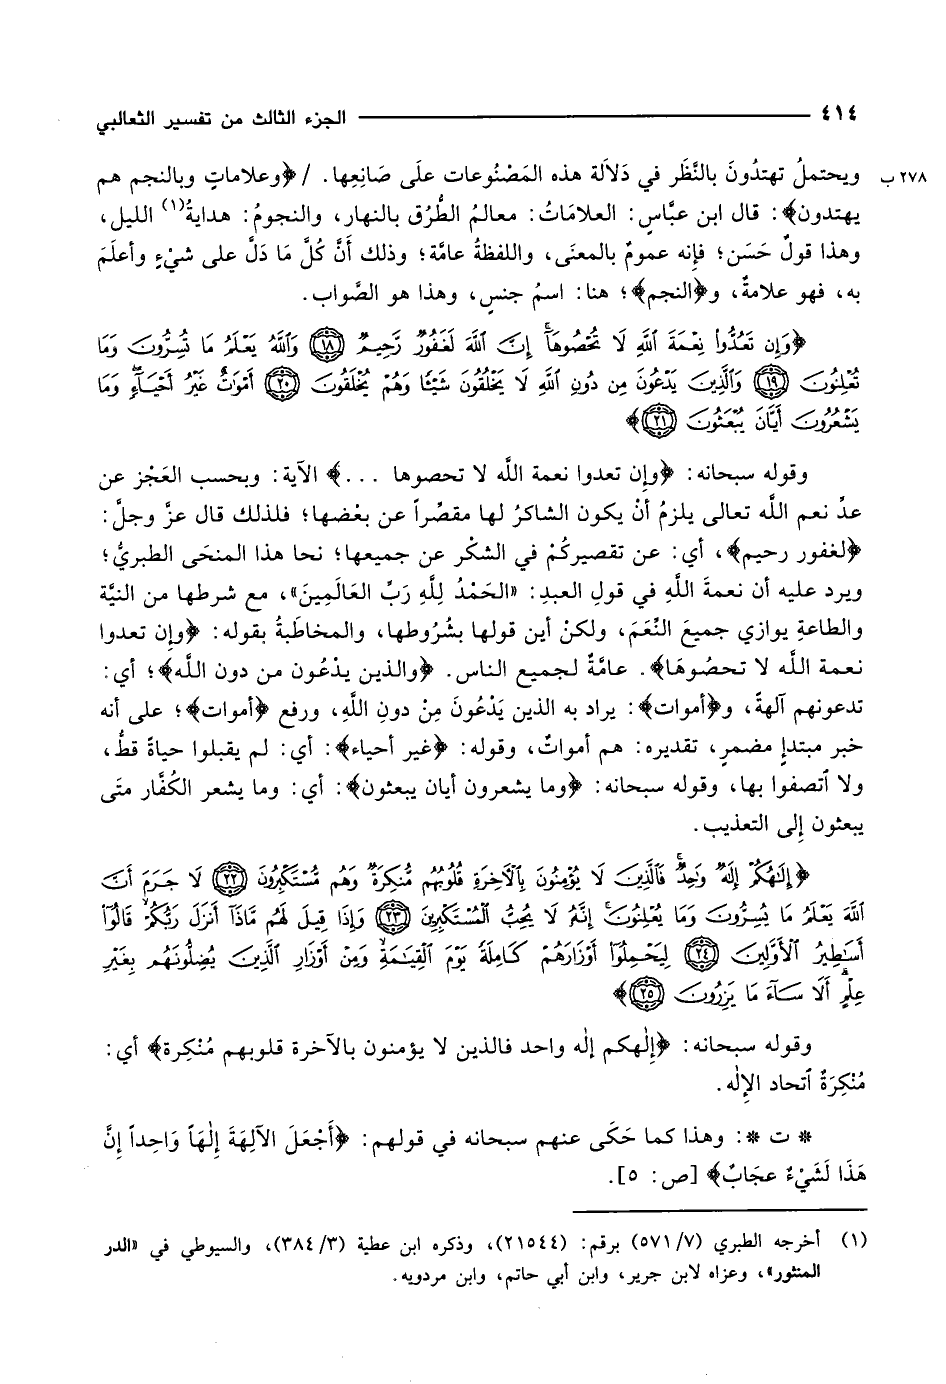 ٤١٤ الجزء الثالث من تفسير الثعالبي
٢٧٨ ب ويحتملُ تهتدُونَ بالنَّظَر في دَلاَلة هذه المَصْنُوعات علَى صَانِعِها. / ﴿وعلاماتٍ وبالنجم هم
يهتدون﴾: قال ابن عبَّاسٍ: العلامَاتُ: معالمُ الطُّرُق بالنهار، والنجومُ: هدايةُ(١) الليل،
وهذا قولٌ حَسَن؛ فإنه عمومٌ بالمعنَى، واللفظةُ عامَّة؛ وذلك أَنَّ كُلَّ مَا دَلَّ على شيْءٍ وأعلَمَ
به، فهو علامةٌ، و﴿النجم﴾؛ هنا: اسمُ جنسٍ، وهذا هو الصَّواب.
﴿وَإِن تَعُدُّوا نِعْمَةَ اللَّهِ لَا تُحْصُوهَا إِنَّ اللَّهَ لَغَفُورٌ رَّحِيمٌ ١٨ وَاللَّهُ يَعْلَمُ مَا تُسِرُّونَ وَمَا
تُعْلِنُونَ ١٩ وَالَّذِينَ يَدْعُونَ مِن دُونِ اللَّهِ لَا يَخْلُقُونَ شَيْئًا وَهُمْ يُخْلَقُونَ ٢٠ أَمْوَاتٌ غَيْرُ أَحْيَاءٍ وَمَا
يَشْعُرُونَ أَيَّانَ يُبْعَثُونَ ٢١﴾
وقوله سبحانه: ﴿وإِن تعدوا نعمة اللَّه لا تحصوها ...﴾ الآية: وبحسب العَجْز عن
عدِّ نعم اللَّه تعالى يلزمُ أنْ يكون الشاكرُ لها مقصِّراً عن بعْضها؛ فلذلك قال عزَّ وجلَّ:
﴿لغفور رحيم﴾، أي: عن تقصيركُمْ في الشكْر عن جميعها؛ نحا هذا المنحَى الطبريُّ؛
ويرد عليه أن نعمةَ اللَّهِ في قولِ العبدِ: «الحَمْدُ لِلَّهِ رَبِّ العَالَمِينَ»، مع شرطها من النيَّة
والطاعةِ يوازي جميعَ النِّعَمَ، ولكنْ أين قولها بشُرُوطها، والمخاطَبةُ بقوله: ﴿وإِن تعدوا
نعمة اللَّه لا تحصُوهَا﴾. عامَّةٌ لجميع الناس. ﴿والذين يدْعُون من دون اللَّه﴾؛ أي:
تدعونهم آلهةً، و﴿أموات﴾: يراد به الذين يَدْعُونَ مِنْ دونِ اللَّهِ، ورفع ﴿أموات﴾؛ على أنه
خبر مبتدإٍ مضمرٍ، تقديره: هم أمواتٌ، وقوله: ﴿غير أحياء﴾: أي: لم يقبلوا حياةً قطُّ،
ولا ٱتصفوا بها، وقوله سبحانه: ﴿وما يشعرون أيان يبعثون﴾: أي: وما يشعر الكُفَّار متَى
يبعثون إِلى التعذيب.
﴿إِلَهُكُمْ إِلَهٌ وَاحِدٌ فَالَّذِينَ لَا يُؤْمِنُونَ بِالْآخِرَةِ قُلُوبُهُم مُّنكِرَةٌ وَهُم مُّسْتَكْبِرُونَ ٢٢ لَا جَرَمَ أَنَّ
اللَّهَ يَعْلَمُ مَا يُسِرُّونَ وَمَا يُعْلِنُونَ إِنَّهُ لَا يُحِبُّ الْمُسْتَكْبِرِينَ ٢٣ وَإِذَا قِيلَ لَهُم مَّاذَا أَنزَلَ رَبُّكُمْ قَالُوا
أَسَاطِيرُ الْأَوَّلِينَ ٢٤ لِيَحْمِلُوا أَوْزَارَهُمْ كَامِلَةً يَوْمَ الْقِيَامَةِ وَمِنْ أَوْزَارِ الَّذِينَ يُضِلُّونَهُم بِغَيْرِ
عِلْمٍ أَلَا سَاءَ مَا يَزِرُونَ ٢٥﴾
وقوله سبحانه: ﴿إِلٰهكم إِلٰه واحد فالذين لا يؤمنون بالآخرة قلوبهم مُنْكِرة﴾ أي:
مُنْكِرَةٌ ٱتحاد الإِلٰه.
* ت *: وهذا كما حَكَى عنهم سبحانه في قولهم: ﴿أَجْعَلَ الآلِهَةَ إِلٰهَاً وَاحِداً إِنَّ
هَذَا لَشَيْءٌ عجَابٌ﴾ [ص: ٥].
(١) أخرجه الطبري (٧/ ٥٧١) برقم: (٢١٥٤٤)، وذكره ابن عطية (٣/ ٣٨٤)، والسيوطي في «الدر
المنثور»، وعزاه لابن جرير، وابن أبي حاتم، وابن مردويه.